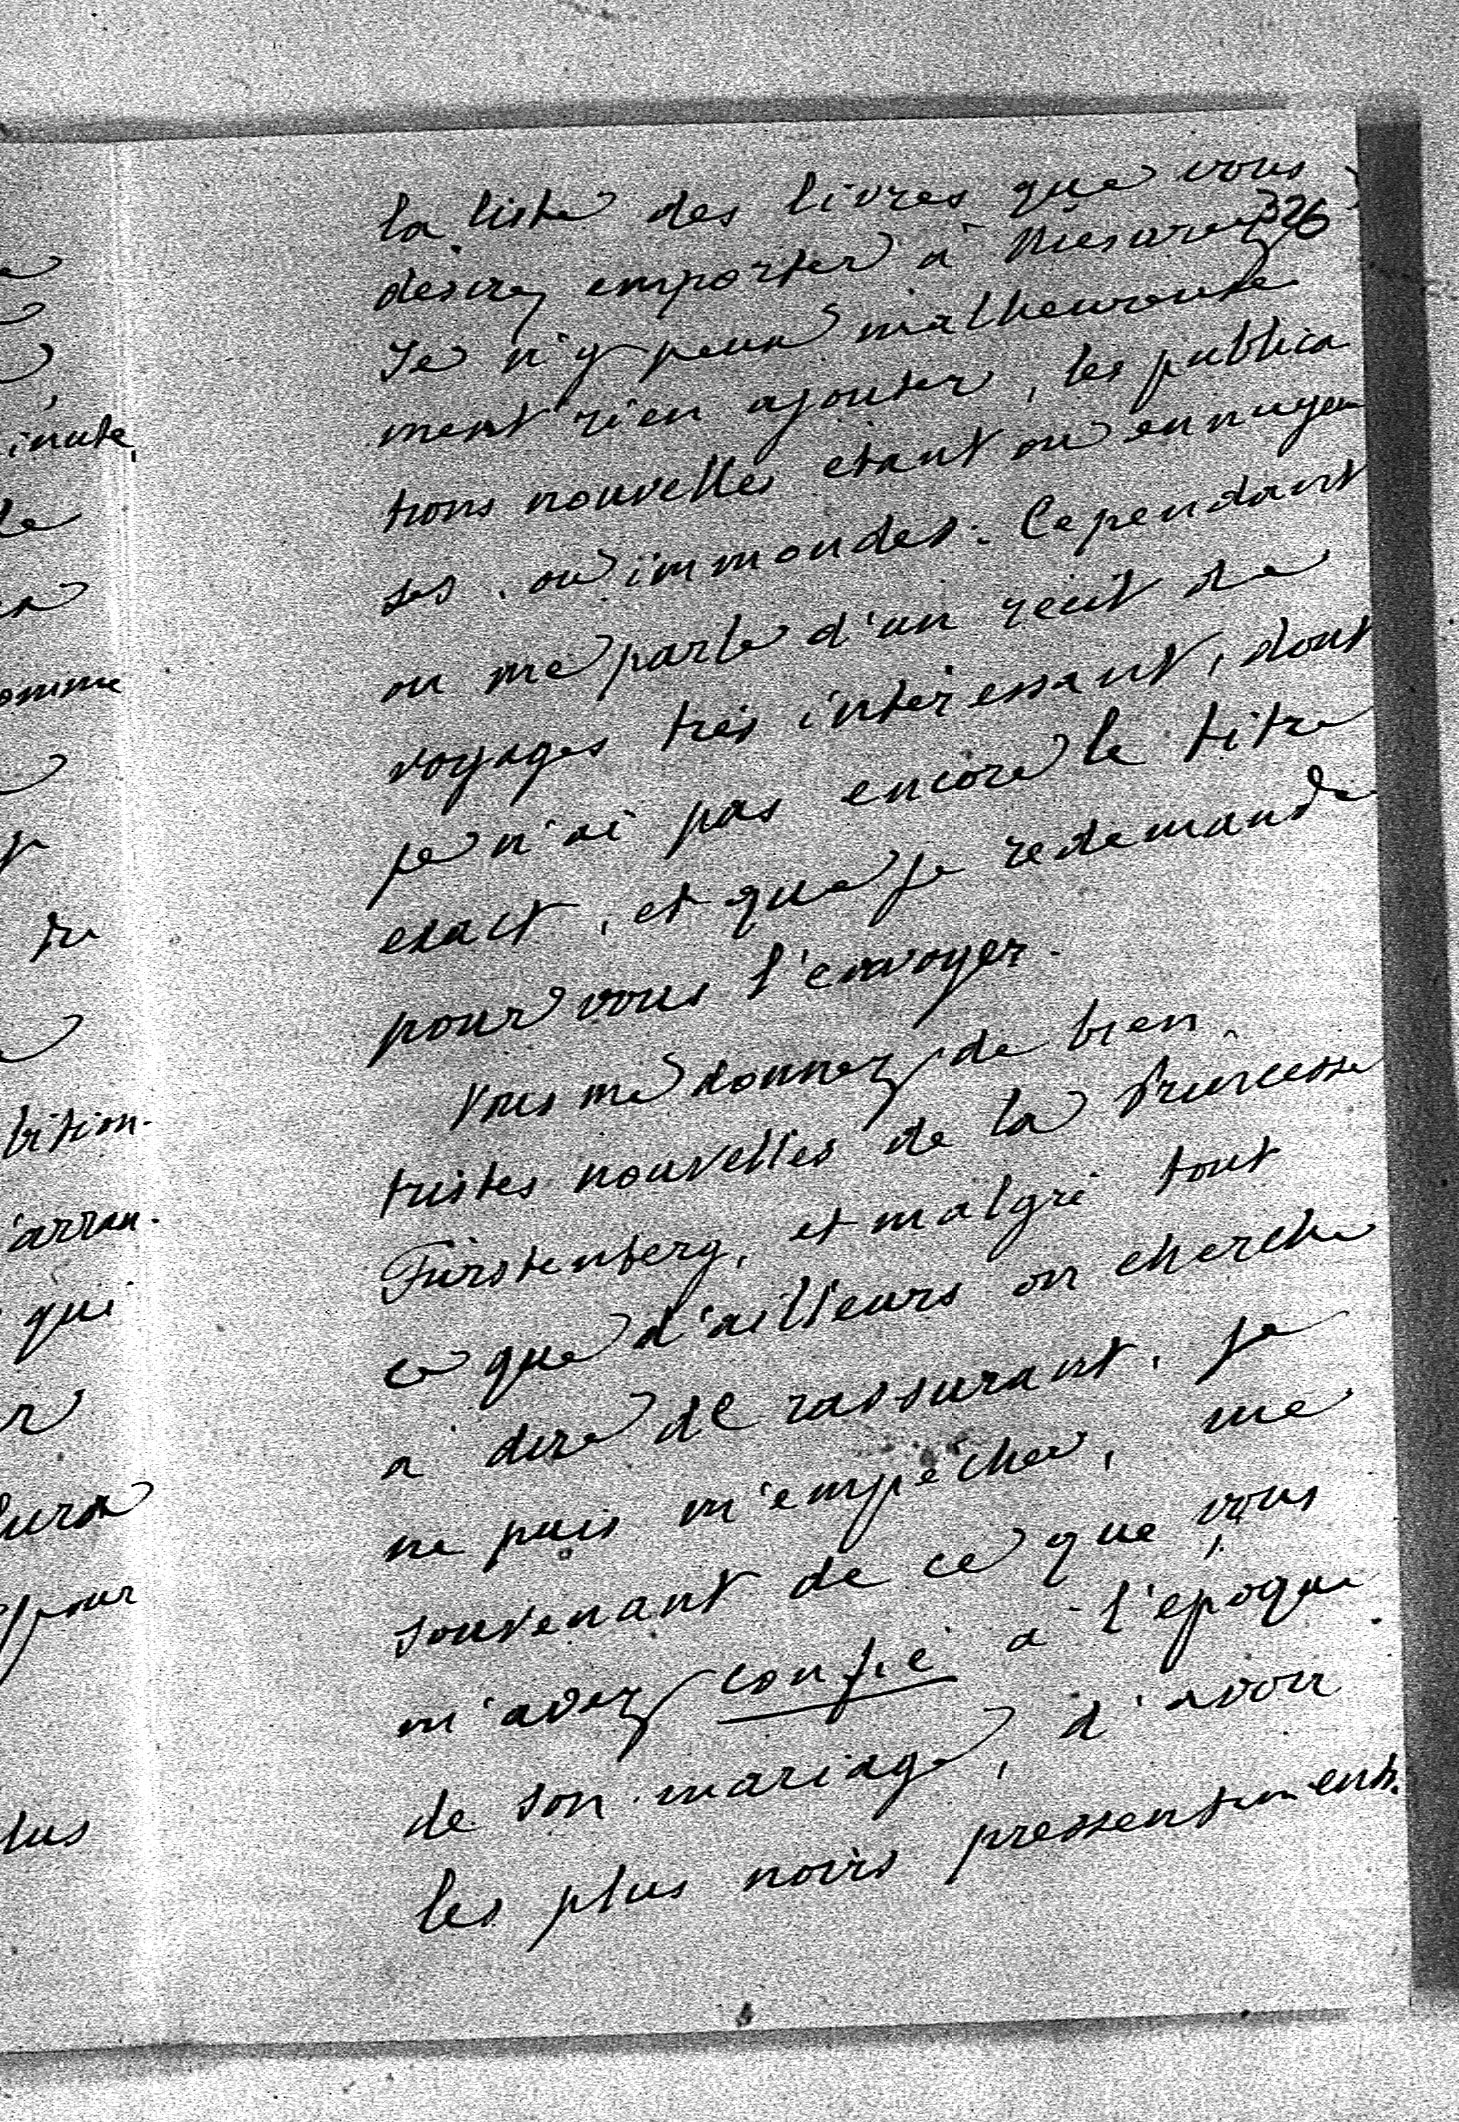 la liste des livres que vous
326
desirez emporter à
Je n'y peux malheureuse
ment rien ajouter, les publica
tions nouvelles étant ou ennuyeu
ses, ou immondes. Cependant
on me parle d'un récit de
voyages très intéressant, dont
je n'ai pas encore le titre
exact, et que je redemande
pour vous l'envoyer.
Vous me donnez de bien
tristes nouvelles de la Princesse
Fürstenberg, et malgré tout
ce que d'ailleurs on cherche
à dire de rassurant, je
ne puis m'empêcher, me
souvenant de ce que vous
m'avez confié à l'époque
de son mariage, d'avoir
les plus noirs pressentiments.
inute,
de
omme
tu
bition.
'arran.
qui
pour
lus